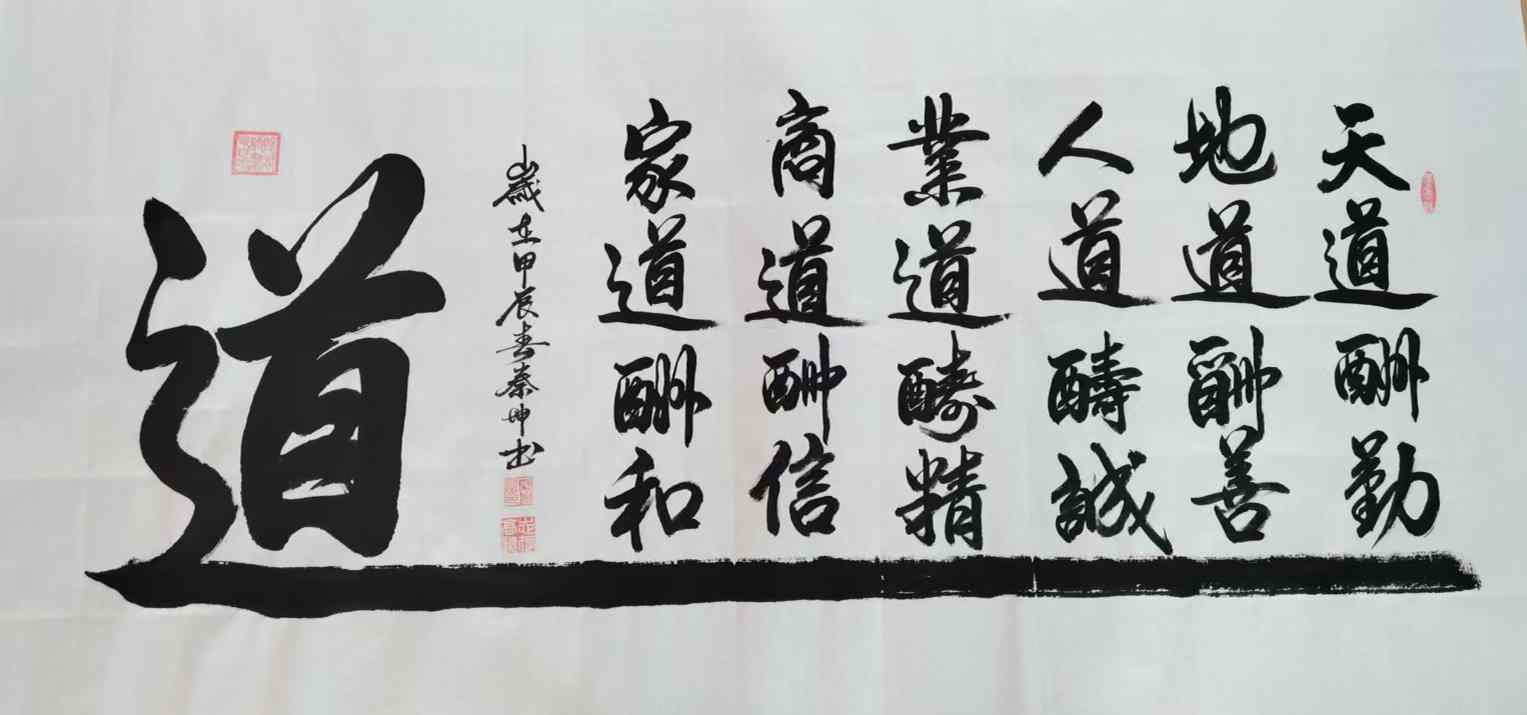 天道酬勤
地道酬善
人道醻誠
業道醻精
商道酬信
家道酬和
歲在甲辰春秦坤书
道